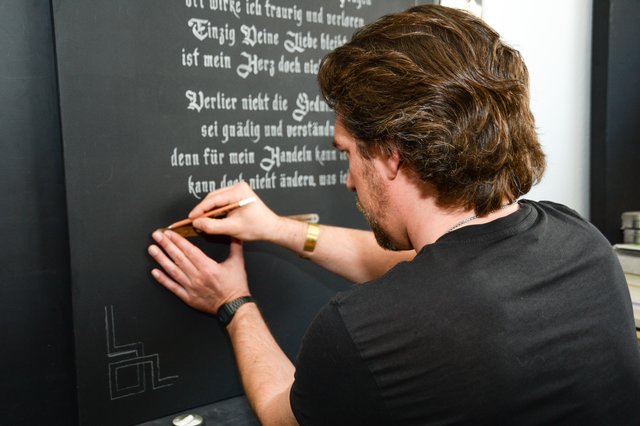 oft wirke ich traurig und verloren
Einzig Deine Liebe bleibt
ist mein Herz doch nicht
Verlier nicht die Gedu
sei gnädig und verständn
denn für mein Handeln kann
kann doch nicht ändern, was ic